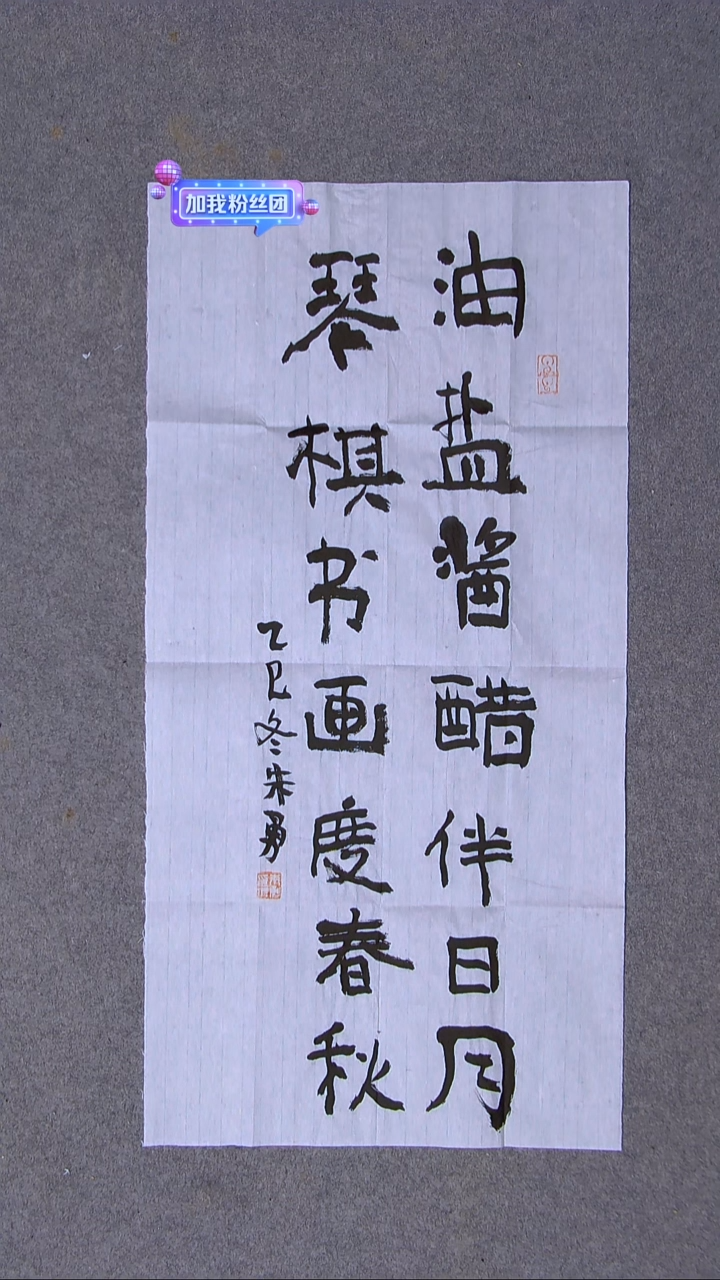 加我粉丝团
油盐酱醋伴日月
琴棋书画度春秋
乙巳冬朱勇